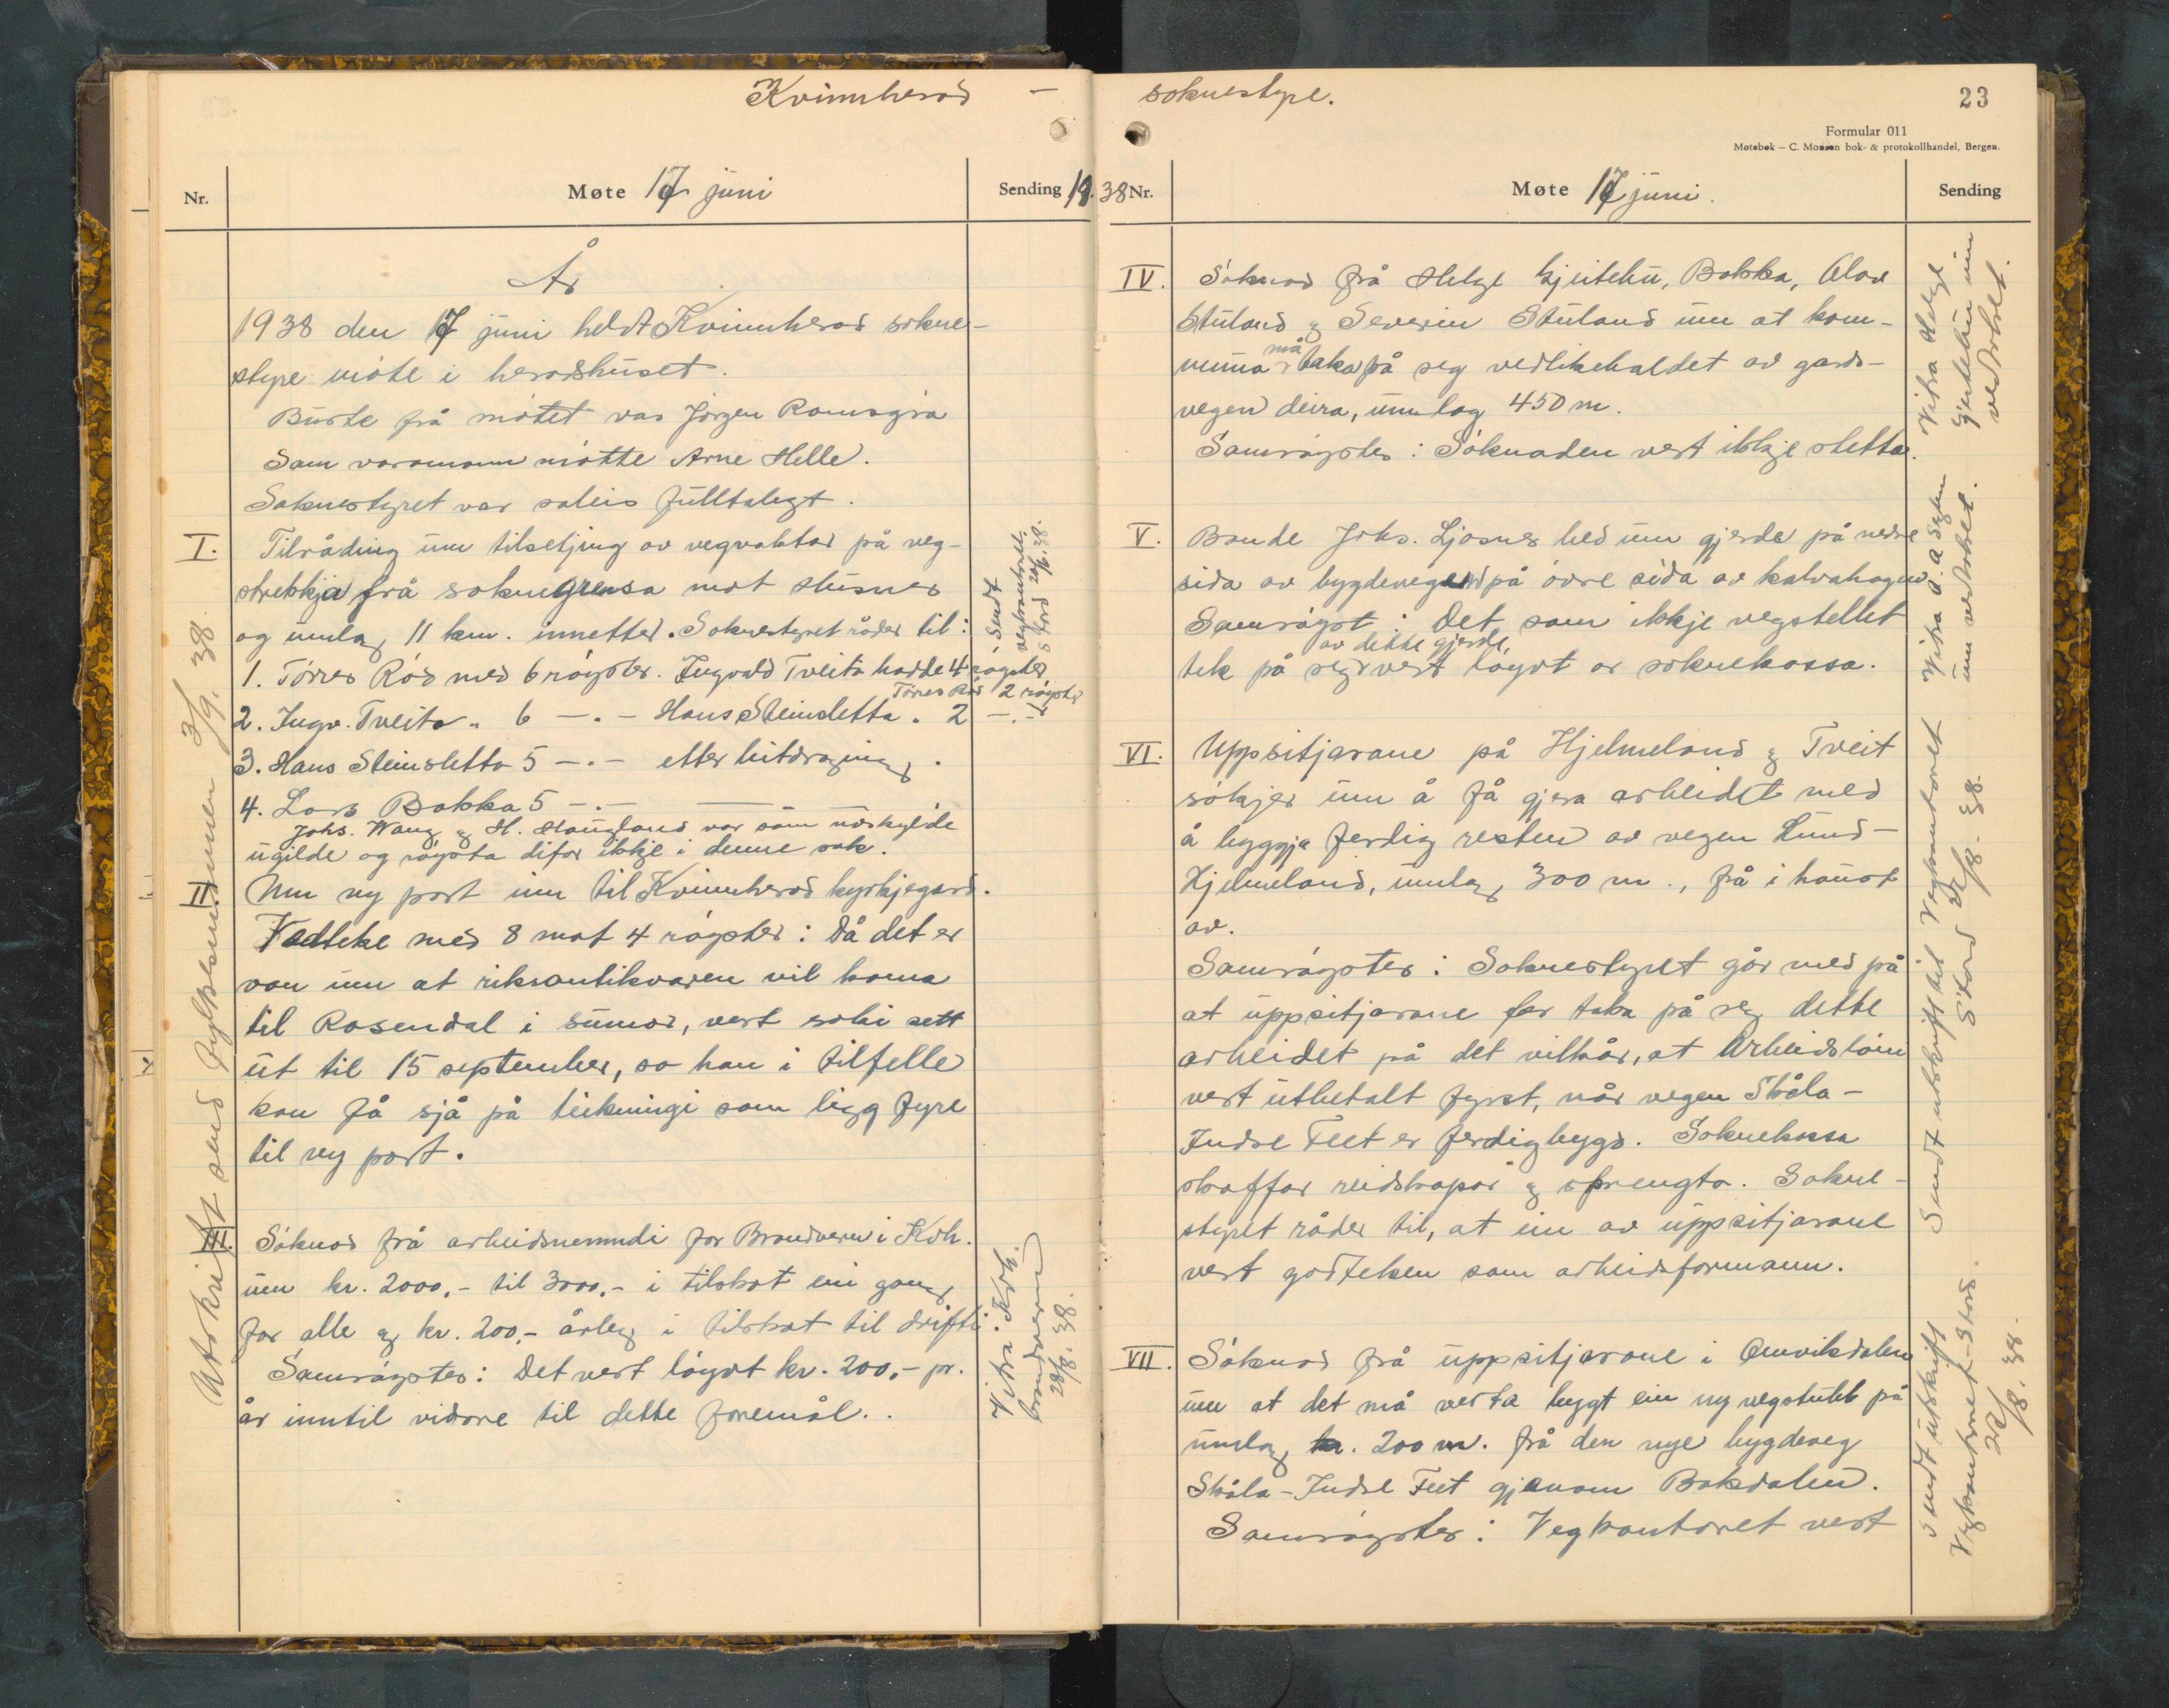 Kvinnherad –
Nr.
Møte 17 juni
Sending 19
År
1938 den 17 juni heldt Kvinnherad sokne-
styre møte i heradshuset.
Burte frå møtet var Jørgen Ramsgrø
Som varamann møtte Arne Helle.
Soknestyret var soleis fulltalegt.
I. Tilråding um tilsetjing av vegvaktar på veg-
strekkja frå soknegrensa mot Husnes
og umlag 11 km. innetter. Soknestyret råder til:
1. Tørres Rød med 6 røyster. Ingvald Tveita hadde 4 røyster
Tørres Rød 2 røyster
2. Ingv. Tveita " 6 —.— Hans Steinsletta . 2 —.—
3. Hans Steinsletta 5 —.— etter lutdraging.
4. Lars Bakka 5 —.— ——
Johs. Wang og H. Haugland var som udskylde
ugilde og røysta difor ikkje i denne sak.
II Um ny port inn til Kvinnherad kyrkjegard.
Vedteke med 8 mot 4 røyster: Då det er
von um at riksantikvaren vil koma
til Rosendal i sumar, vert saki sett
ut til 15 september, so han i tilfelle
kan få sjå på teikningi som ligg fyre
til ny port.
III. Søknad frå arbeidsnemndi for Brandvern i Kvh.
um kr. 2000,- til 3000,- i tilskot ein gong
for alle og kr. 200,- årleg i tilskot til drifti.
Samrøystes: Det vert løyvt kr. 200,- pr.
år inntil vidare til dette foremål.
Utskrift send fylkesmannen 3/9. 38.
Sendt
vegkontoret
Stord 24/6. 38.
Vitra Kvh.
brandvern
28/8. 38.
soknestyre.
23
Formular 011
Møtebok – C. Monsen bok- & protokollhandel, Bergen.
38 Nr.
Møte 17 juni.
Sending
IV. Søknad frå Helge Gjeitehu, Bakka, Olav
Stuland og Severin Stuland um at kom-
muna må taka på seg vedlikehaldet av gards-
vegen deira, umlag 450 m.
Samrøystes: Søknaden vert ikkje stetta.
V. Bonde Johs. Ljosnes bed um gjerde på nedre
sida av bygdevegen på øvre sida av kalvahagen
Samrøyst: Det som ikkje vegstellet
av dette gjerde,
tek på seg vert løyvt av soknekassa.
VI. Uppsitjarane på Hjelmeland og Tveit
søkjer um å få gjera arbeidet med
å byggja ferdig resten av vegen Lund-
Hjelmeland, umlag 300 m., frå i haust
av.
Samrøystes: Soknestyret går med på
at uppsitjarane fær taka på seg dette
arbeidet på det vilkår, at arbeidsløni
vert utbetalt fyrst, når vegen Skåla-
Indre Feet er ferdigbygd. Soknekassa
skaffar reidskapar og sprengto. Sokne-
styret råder til, at ein av uppsitjarane
vert godteken som arbeidsformann.
VII. Søknad frå uppsitjarane i Omvikdalen
um at det må verta bygt ein ny vegstubb på
umlag 200 m. frå den nye bygdeveg
Skåla-Indre Feet gjenom Bakdalen.
Samrøystes: Vegkontoret vert
Vitra Helge
Gjeitehu um
vedtaket.
Vitra
um vedtaket.
Sendt utskrift til Vegkontoret
Stord 22/8. 38.
Sendt utskrift
Vegkontoret-Stord.
22/8. 38.